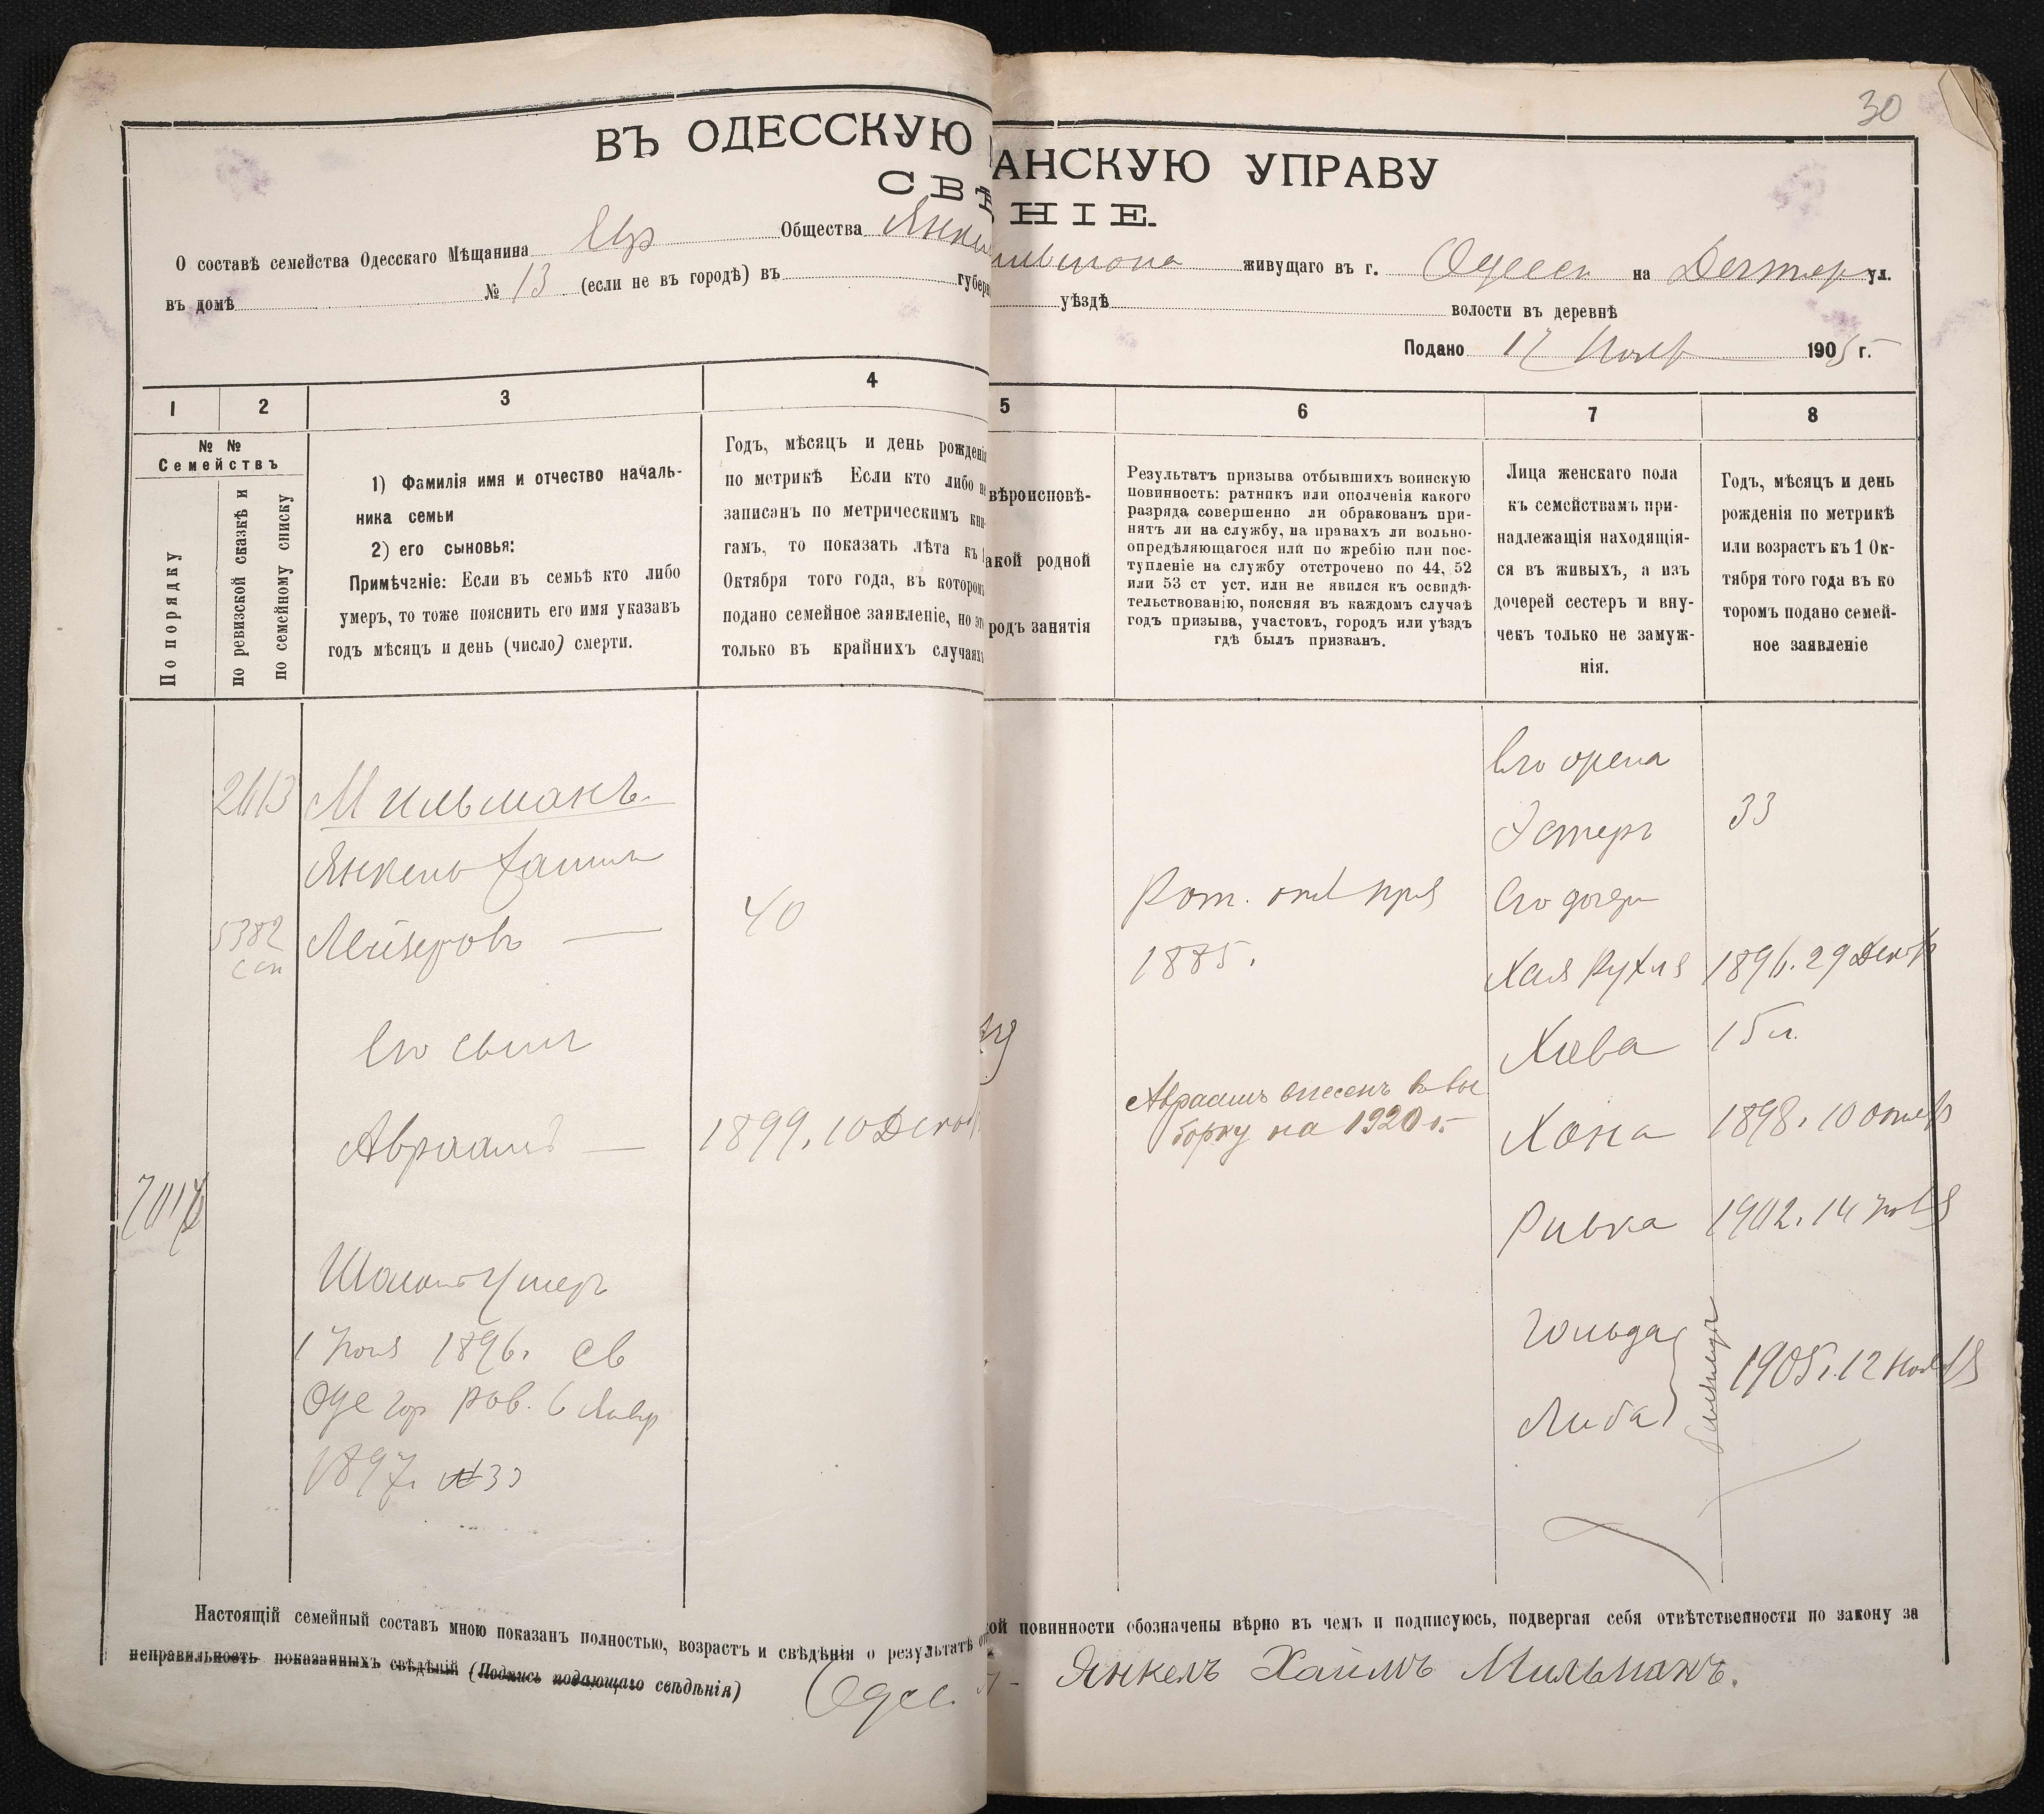 30
ВЪ ОДЕССКУЮ АНСКУЮ УПРАВУ
СВѢ НІЕ.
О составѣ семейства Одесскаго Мѣщанина Евр Общества Янкел Мильмана живущаго въ г. Одессѣ на ул.
въ домѣ № 13 (если не въ городѣ) въ губерн уѣздѣ волости въ деревнѣ
Подано 17 Нояб 1905 г.
1 2 3 4 5 6 7 8
№ №
Семействъ
По порядку
по ревизской сказкѣ и
по семейному списку
1) Фамилія имя и отчество началь-
ника семьи
2) его сыновья:
Примѣчаніе: Если въ семьѣ кто либо
умеръ, то тоже пояснить его имя указавъ
годъ мѣсяцъ и день (число) смерти.
Годъ, мѣсяцъ и день рожденія
по метрикѣ Если кто либо не
записанъ по метрическимъ кни-
гамъ, то показать лѣта къ 1
Октября того года, въ котором
подано семейное заявленіе, но эт
только въ крайнихъ случаяхъ
вѣроисповѣ-
акой родной
родъ занятія
Результатъ призыва отбывшихъ воинскую
повинность: ратникъ или ополченія какого
разряда совершенно ли обракованъ при-
нятъ ли на службу, на правахъ ли вольно-
опредѣляющагося или по жребію или пос-
тупленіе на службу отстрочено по 44, 52
или 53 ст уст. или не явился къ освидѣ-
тельствованію, поясняя въ каждомъ случаѣ
годъ призыва, участокъ, городъ или уѣздъ
гдѣ былъ призванъ.
Лица женскаго пола
къ семействамъ при-
надлежащія находящія-
ся въ живыхъ, а изъ
дочерей сестеръ и вну-
чекъ только не замуж-
нія.
Годъ, мѣсяцъ и день
рожденія по метрикѣ
или возрастъ къ 1 Ок-
тября того года въ ко
торомъ подано семей-
ное заявленіе
2613
Мильманъ.
Янкель Хаим
5382
Лейзеровъ —
40
Его сынъ
Авраамъ —
1899, 10 Декаб
Умеръ
1 1896. св
Оде гор рав. 6 Январ
1897. №
Рат.
1885.
Авраамъ внесенъ въ вы
борку на 1920 г.
Его жена
Эстеръ
33
Его дочери
Хая Рухля
1896. 29 Декаб
Хава
15 л.
Хана
1898. 10 октяб
Ривка
1902. 14
Гольда
Либа
близнецы
1905 г. 12 Ноября
Настоящій семейный составъ мною показанъ полностью, возрастъ и свѣдѣнія о результатѣ от ой повинности обозначены вѣрно въ чемъ и подписуюсь, подвергая себя отвѣтственности по закону за
неправильность показанныхъ свѣдѣній (Подпись подающаго свѣдѣнія) Одес Янкель Хаимъ Мильманъ.